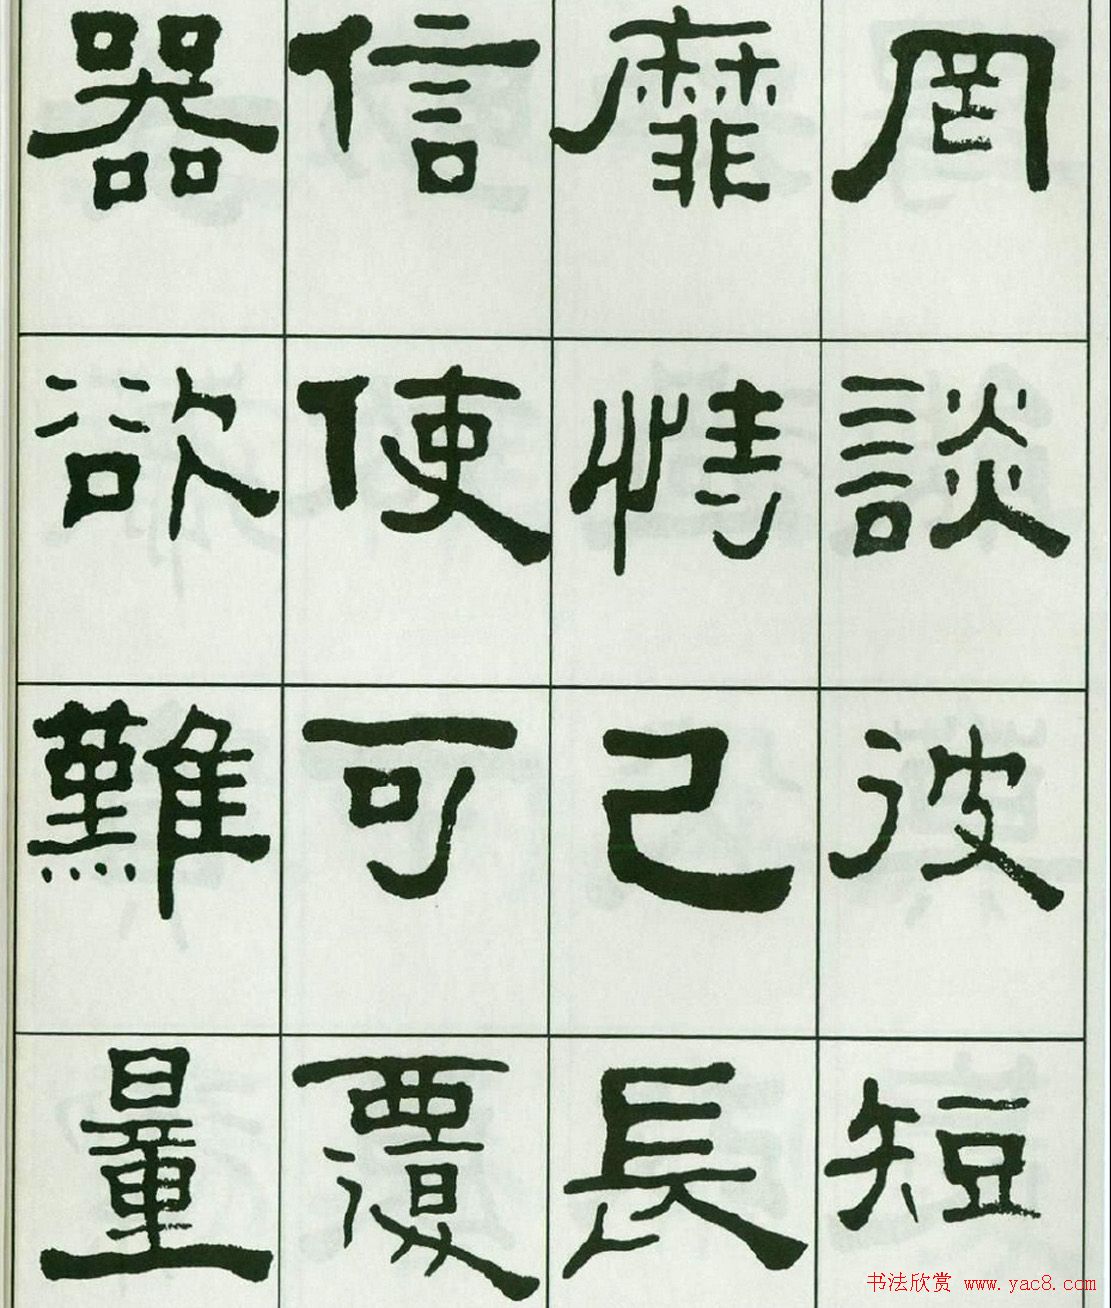 罔談彼短
靡恃己長
信使可覆
器欲難量
书法欣赏 www.yac8.com